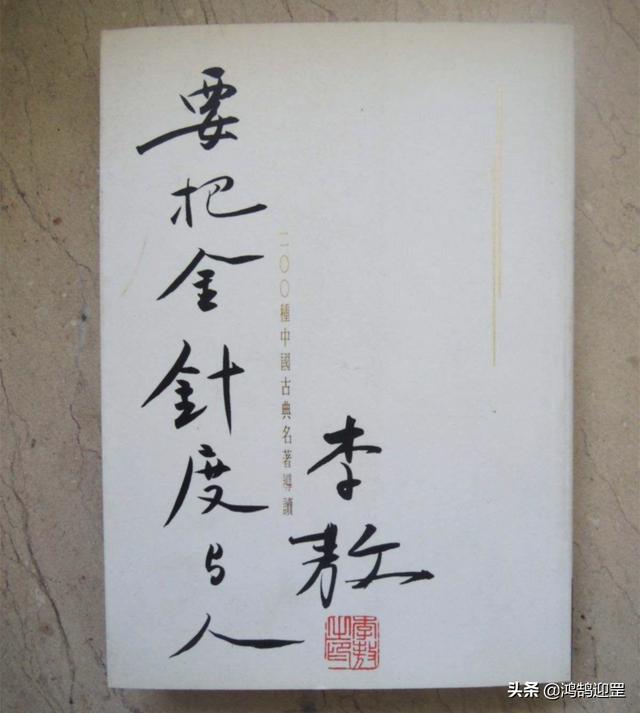 要把金針度与人
二〇〇種中國古典名著導讀
李敖
李敖之印
头条 @鸿鹄迎罡